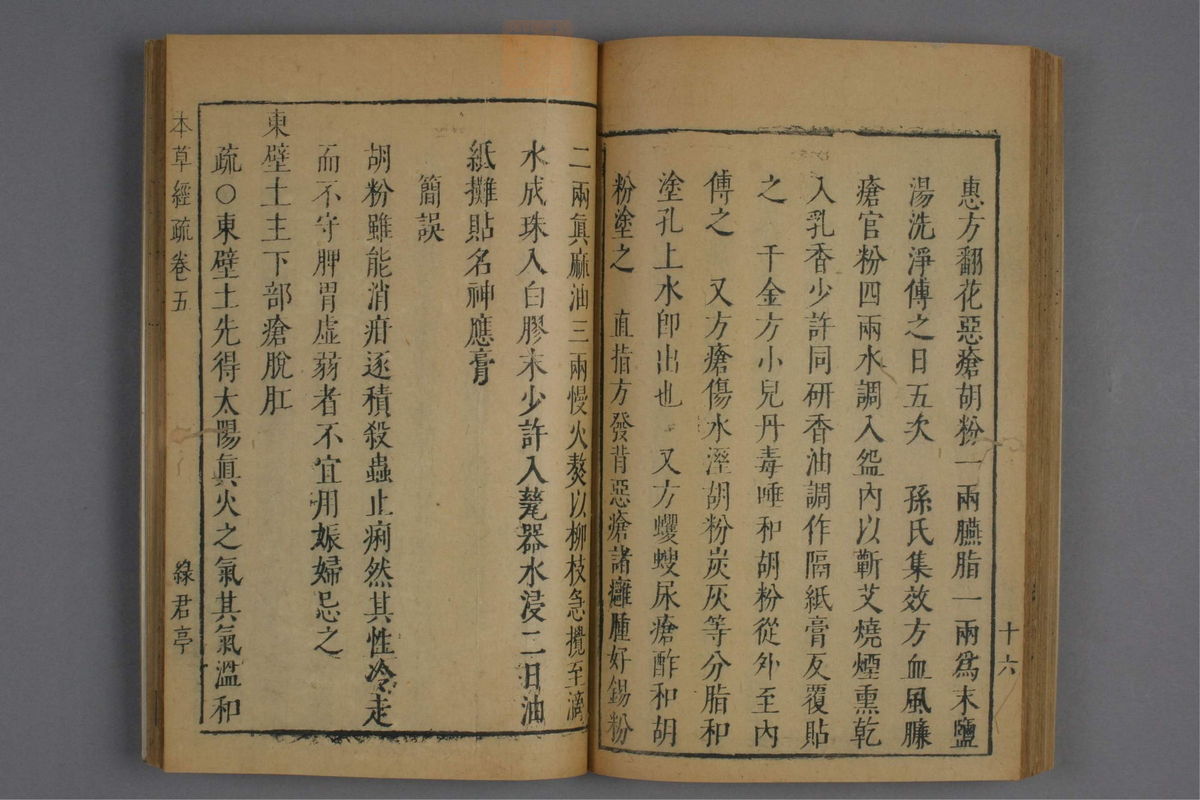 惠方翻花惡瘡胡粉一兩臙脂一兩爲末鹽
湯洗淨傅之日五次　孫氏集效方血風臁
瘡官粉四兩水調入盌內以蘄艾燒煙熏乾
入乳香少許同研香油調作隔紙膏反覆貼
之　千金方小兒丹毒唾和胡粉從外至內
傅之　又方瘡傷水溼胡粉炭灰等分脂和
塗孔上水卽出也　又方蠼螋尿瘡酢和胡
粉塗之　直指方發背惡瘡諸癰腫好錫粉
十六
二兩眞麻油三兩慢火熬以柳枝急攪至滴
水成珠入白膠末少許入甆器水浸二日油
紙攤貼名神應膏
簡誤
胡粉雖能消疳逐積殺蟲止痢然其性冷走
而不守脾胃虛弱者不宜用娠婦忌之
東壁土主下部瘡脫肛
疏○東壁土先得太陽眞火之氣其氣溫和
本草經疏卷五
綠君亭